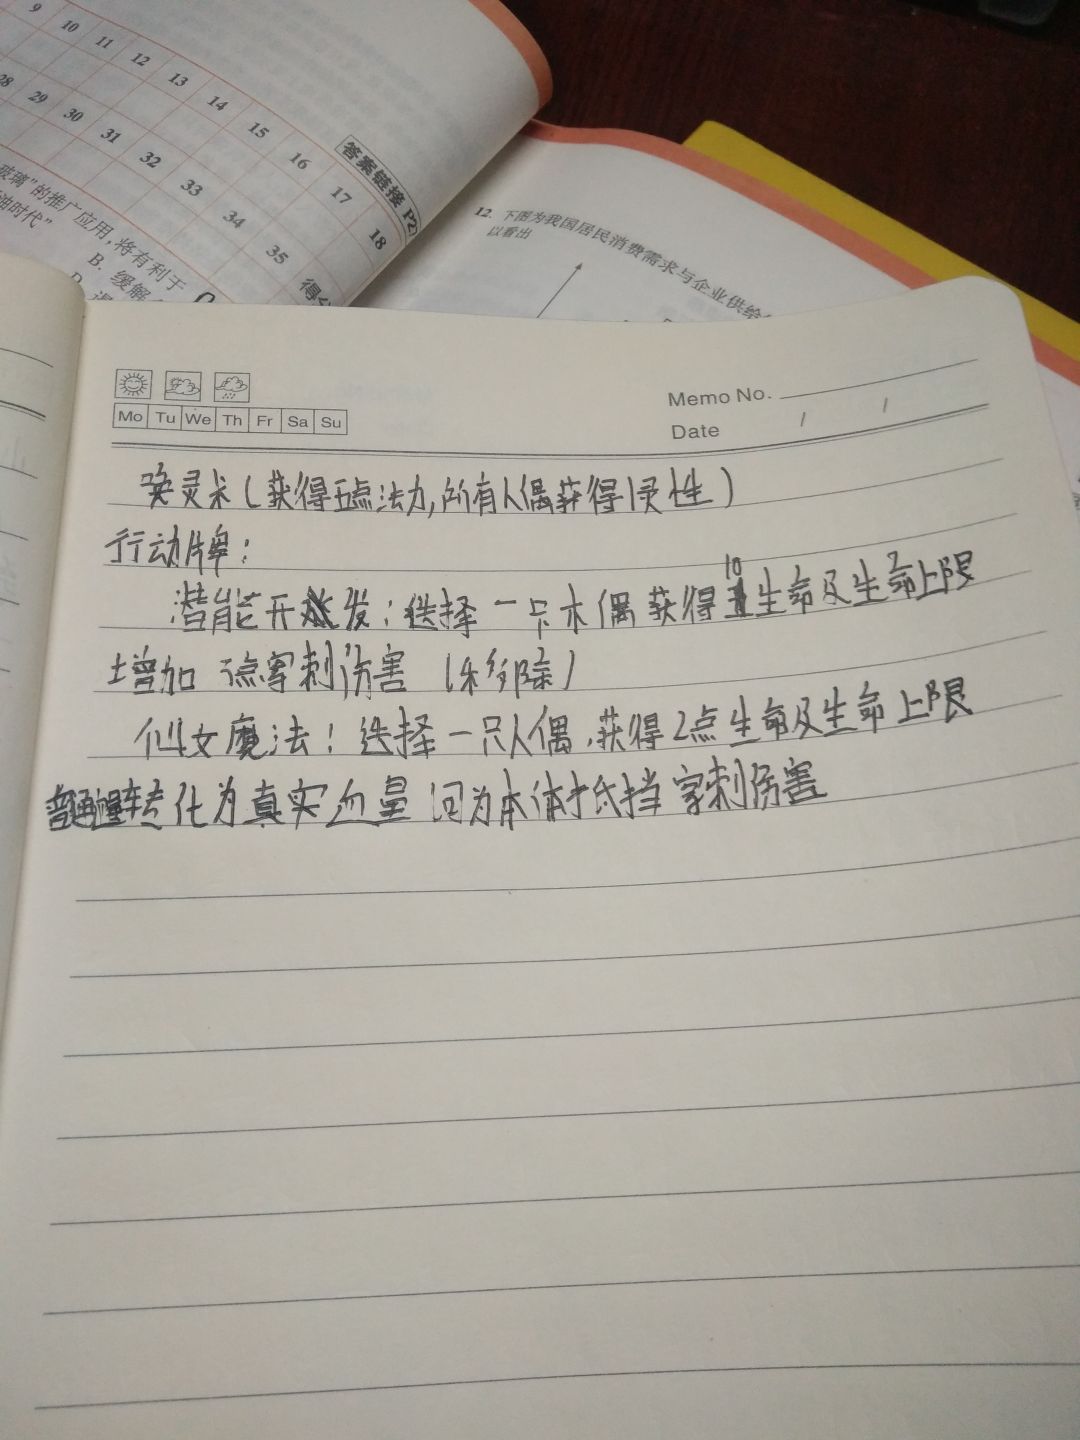 9 10 11 12 13 14 15 16 17 18
28 29 30 31 32 33 34 35
答案链接 P2
玻璃”的推广应用,将有利于
油时代”
B. 缓解
D.
12. 下图为我国居民消费需求与企业供给
以看出
Memo No.
Mo Tu We Th Fr Sa Su
Date / /
唤灵术(获得五点法力,所有人偶获得灵性)
行动牌:
潜能开发:选择一只木偶获得10生命及生命上限
增加 点穿刺伤害 (移除)
仙女魔法:选择一只人偶,获得2点生命及生命上限
普通血量转化为真实血量 可为本体抵挡穿刺伤害